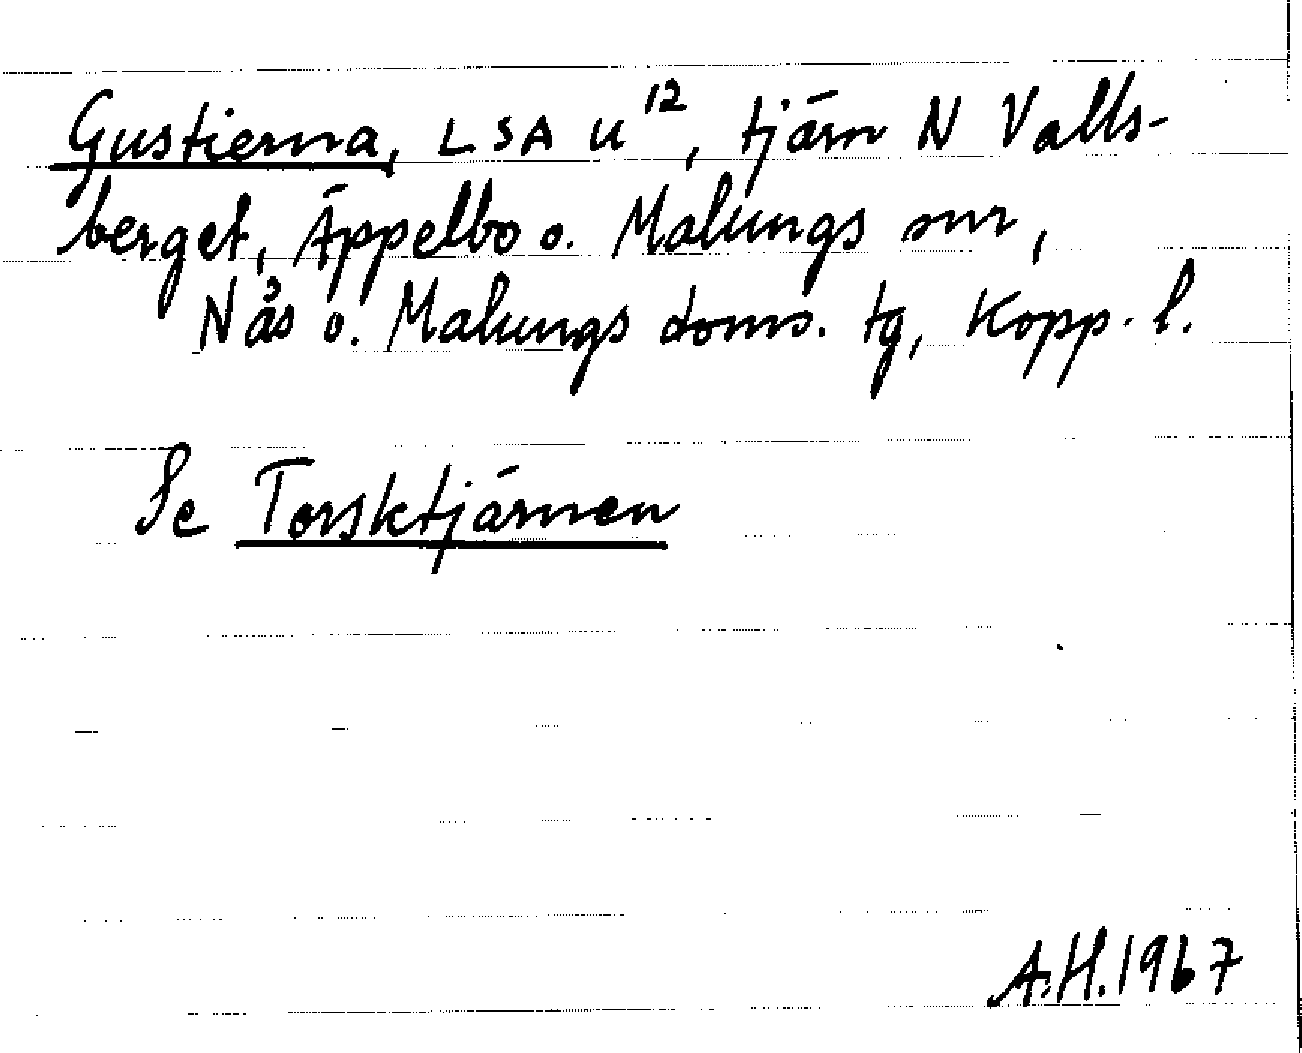 Gustierna, LSA U¹², tjärn N Valls-
berget, Äppelbo o. Malungs snr,
Nås o. Malungs doms. tg, Kopp. l.
Se Torsktjärnen
A.H. 1967